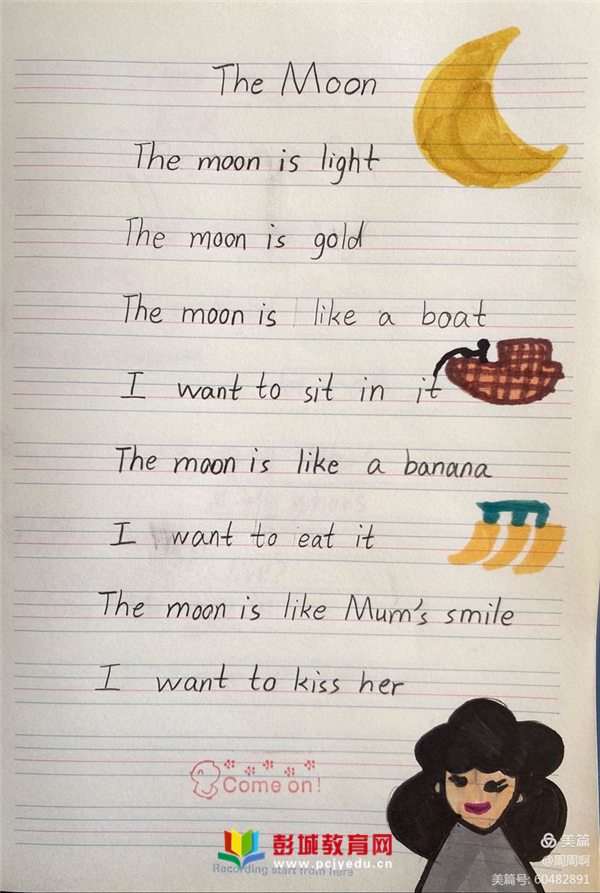 The Moon
The moon is light
The moon is gold
The moon is like a boat
I want to sit in it
The moon is like a banana
I want to eat it
The moon is like Mum's smile
I want to kiss her
Come on!
彭城教育网
www.pcjyedu.cn
Recording start from here
美篇
@周周啊
美篇号: 60482891